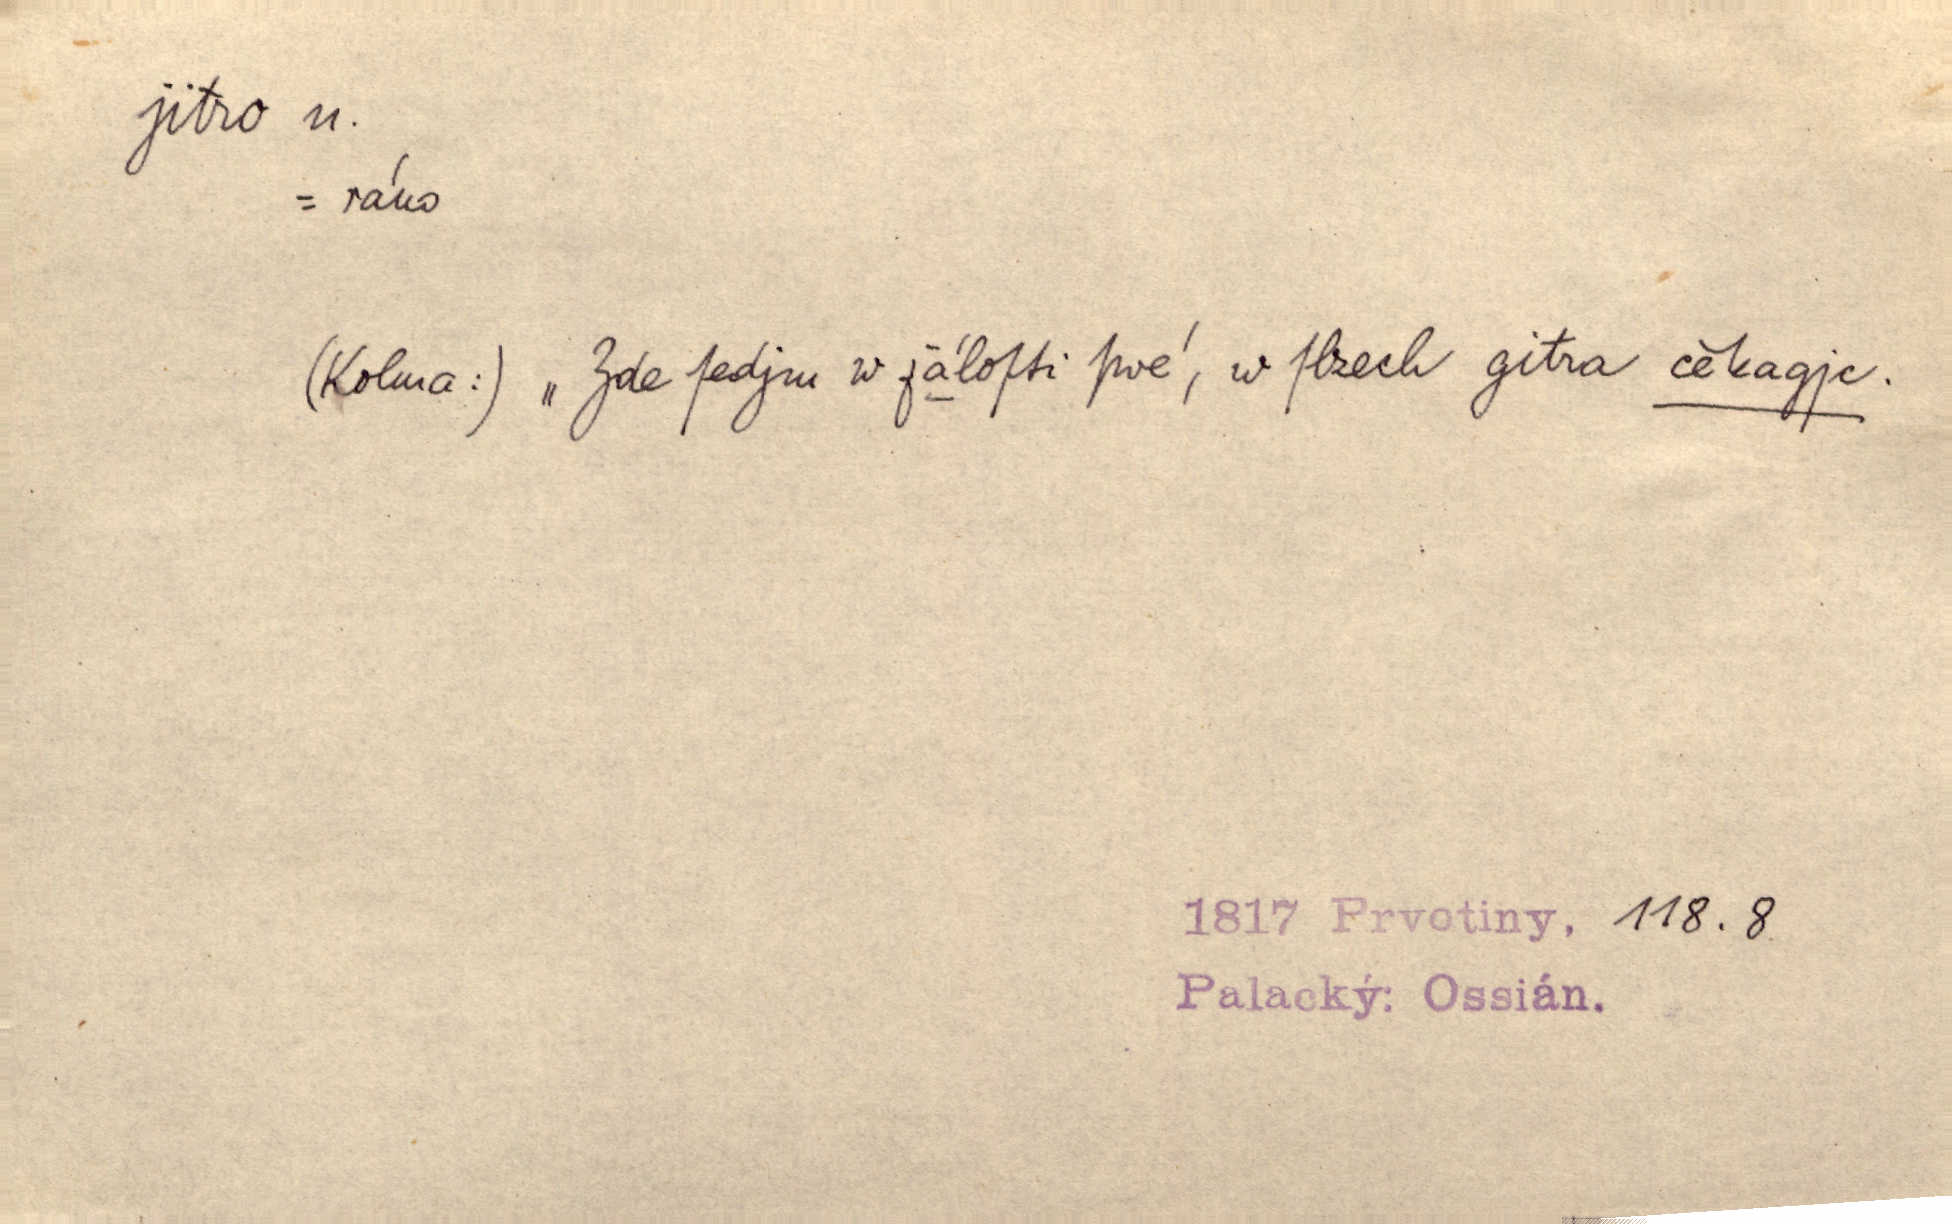 jitro n.
= ráno
(Kolma:) „Zde ſedjm w žáloſti ſwé, w ſlzech gitra čekagjc.
1817 Prvotiny, 118. 8
Palacký: Ossián.